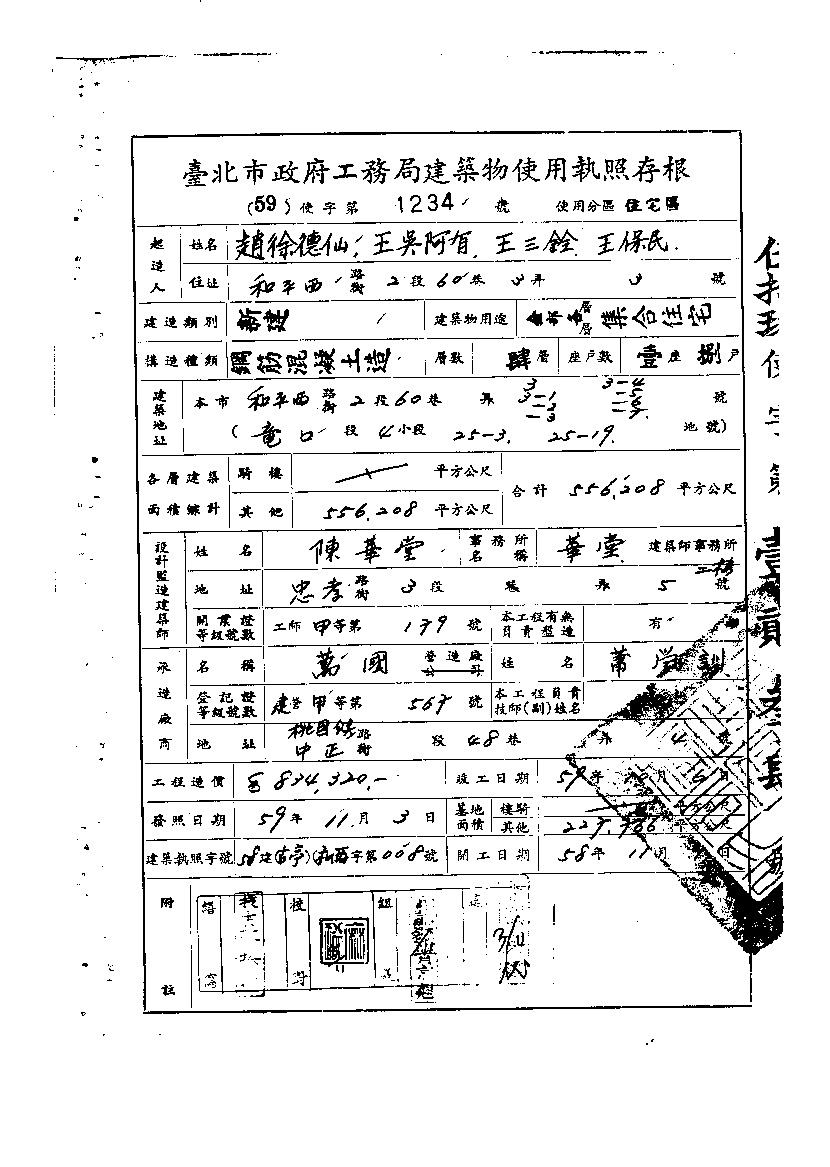 臺北市政府工務局建築物使用執照存根
(59)使字第 1234 號 使用分區 住宅區
起造人 姓名 趙徐德仙、王吳阿旨、王三銓、王保民
住址 和平西路街 2段60巷 3弄 3號
建造類別 新建 建築物用途 全部各層層集合住宅
構造種類 鋼筋混凝土造 層數 肆層 座戶數 壹座 捌戶
建築地址 本市 和平西路街 2段60巷 弄 3 3-1 -2 -3 3-4 -5 -6 -7 號
(竜口段 4小段 25-3. 25-19. 地號)
各層建築面積總計 騎樓 平方公尺 合計 556.208 平方公尺
其他 556.208 平方公尺
設計監造建築師 姓名 陳華堂 事務所名稱 華堂 建築師事務所
地址 忠孝路街 3段 巷 弄 5 號
開業證等級號數 工師 甲等第 179 號 本工程有無負責監造 有
承造廠商 名稱 萬國 營造廠公司 姓名 蕭
登記證等級號數 建營甲等第 567 號 本工程負責技師(副)姓名
地址 桃園縣中正路街 段 48巷 弄 4 號
工程造價 834,320.- 竣工日期 59年 10月 6日
發照日期 59年 11月 3日 基地面積 樓騎 平方公尺
其他 平方公尺
建築執照字號 58建 字第008號 開工日期 58年 11月 日
附註
校
組
3/11
使字第